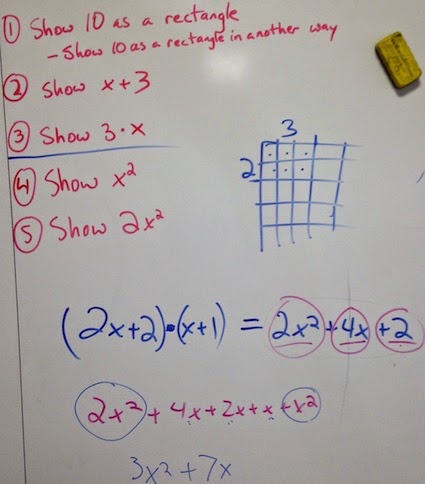 ① Show 10 as a rectangle
- Show 10 as a rectangle in another way
② Show x+3
③ Show 3·x
④ Show x²
⑤ Show 2x²
3
2
(2x+2)•(x+1) = 2x²+4x+2
2x² + 4x+2x+x+x²
3x²+7x